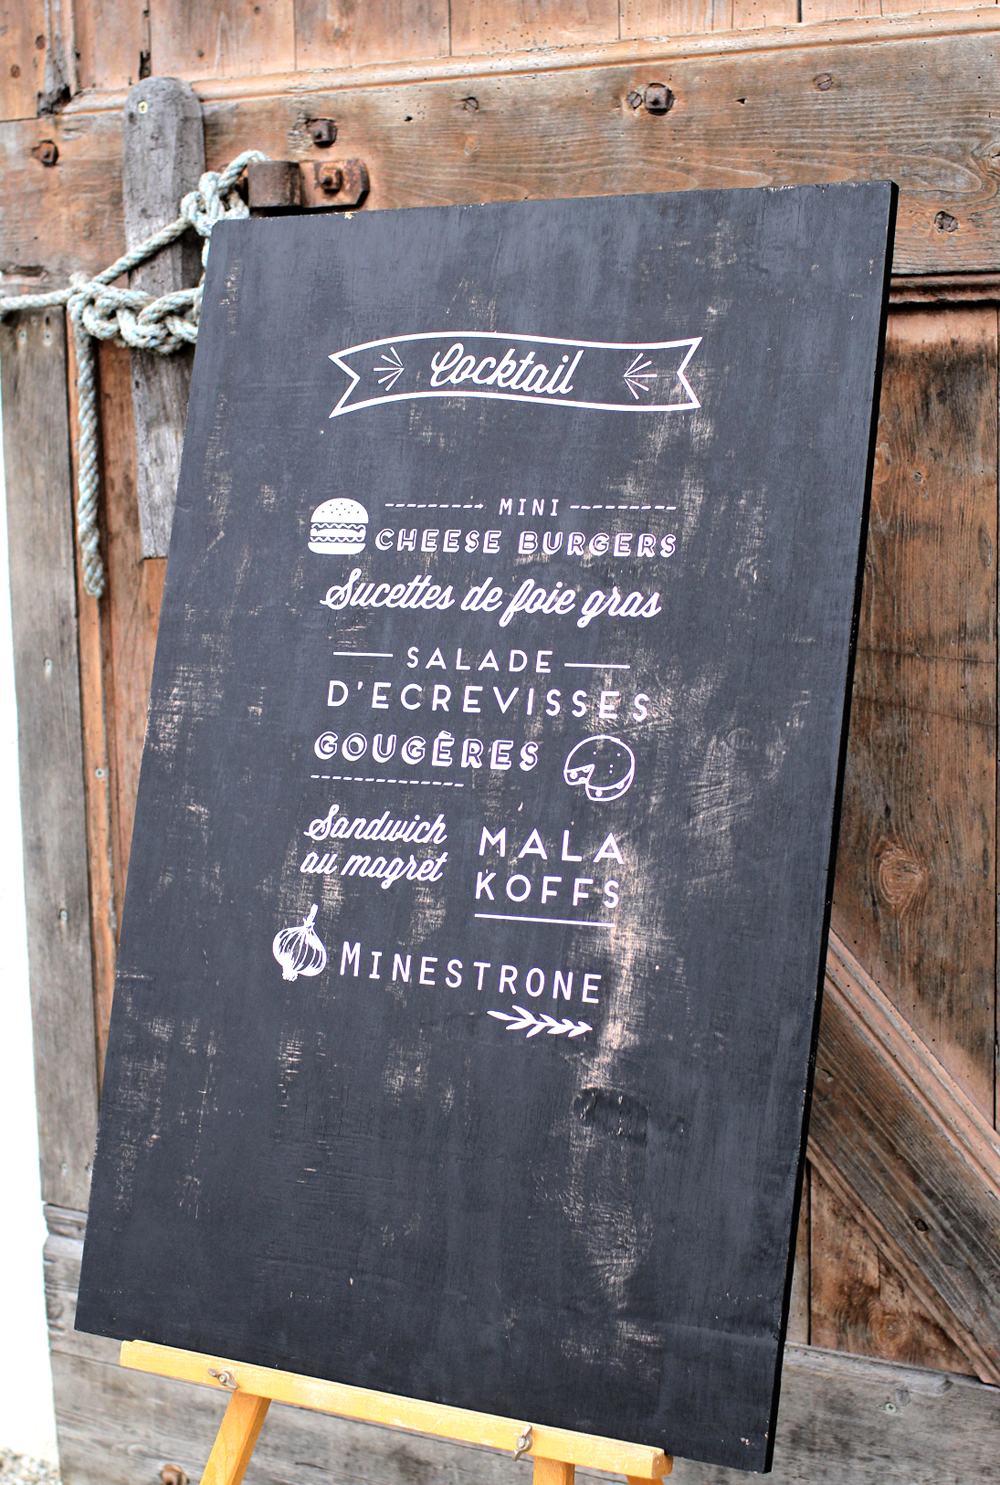 Cocktail
MINI
CHEESE BURGERS
Sucettes de foie gras
SALADE
D'ECREVISSES
GOUGÈRES
Sandwich
au magret
MALA
KOFFS
MINESTRONE